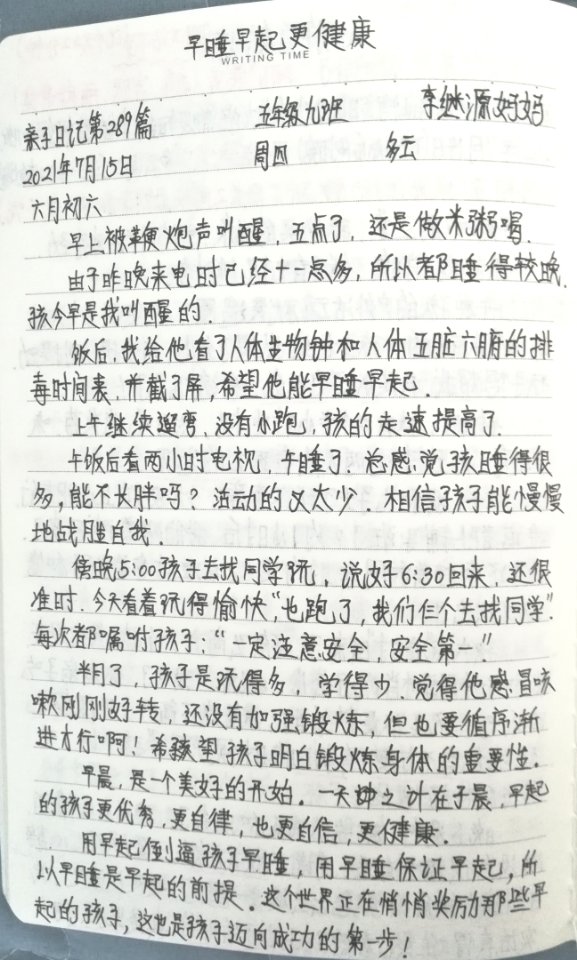 早睡早起更健康
WRITING TIME
亲子日记第289篇 五年级九班 李继源妈妈
2021年7月15日 周四 多云
六月初六
早上被鞭炮声叫醒,五点了,还是做米粥喝.
由于昨晚来电时已经十一点多,所以都睡得较晚.
孩今早是我叫醒的.
饭后,我给他看了人体生物钟和人体五脏六腑的排
毒时间表,并截了屏,希望他能早睡早起.
上午继续遛弯,没有小跑,孩的走速提高了.
午饭后看两小时电视,午睡了,总感觉孩睡得很
多,能不长胖吗?活动的又太少.相信孩子能慢慢
地战胜自我.
傍晚5:00孩子去找同学玩,说好6:30回来,还很
准时.今天看着玩得愉快,"也跑了,我们仨个去找同学".
每次都嘱咐孩子:"一定注意安全,安全第一."
半月了,孩子是玩得多,学得少,觉得他感冒咳
嗽刚刚好转,还没有加强锻炼,但也要循序渐
进才行啊!希孩望孩子明白锻炼身体的重要性.
早晨,是一个美好的开始.一天之计在于晨,早起
的孩子更优秀,更自律,也更自信,更健康.
用早起倒逼孩子早睡,用早睡保证早起,所
以早睡是早起的前提.这个世界正在悄悄奖励那些早
起的孩子,这也是孩子迈向成功的第一步!